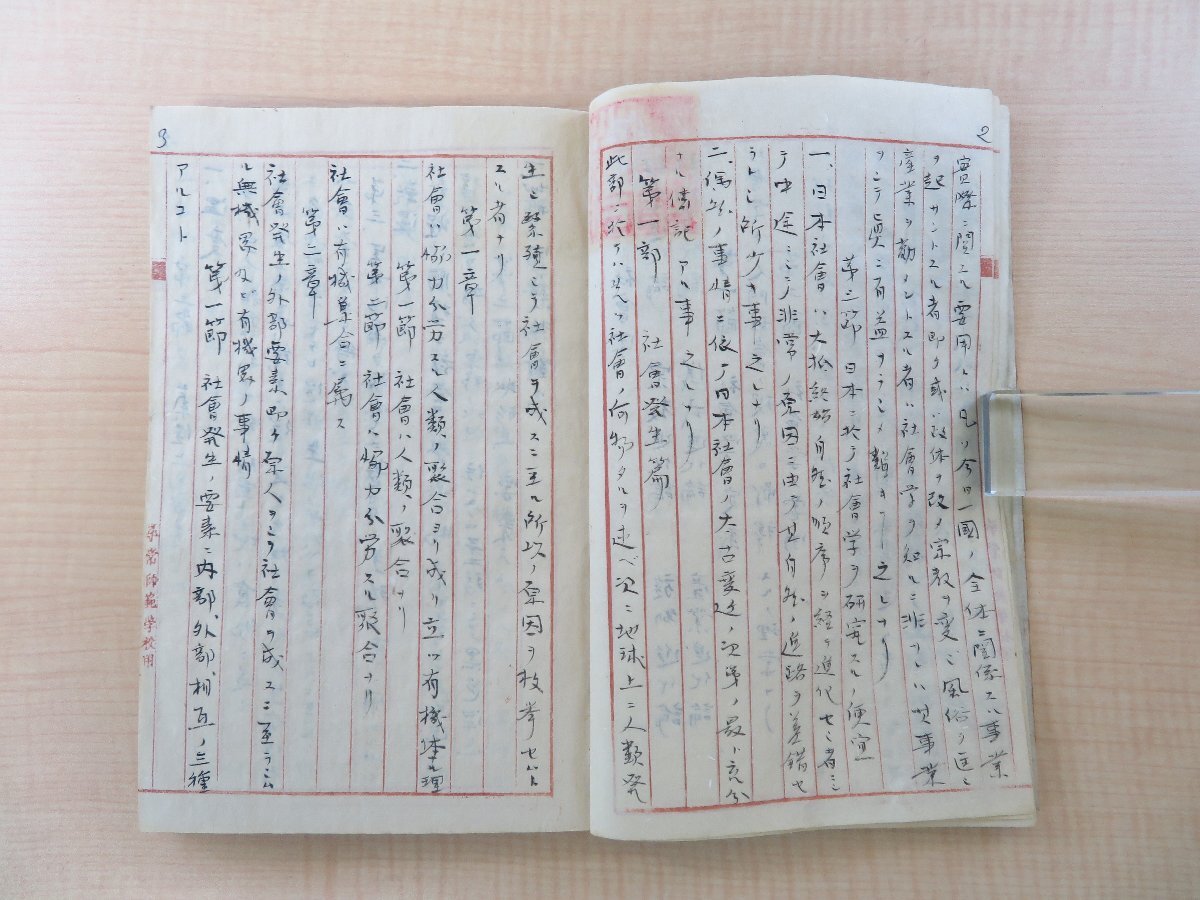 2
實際ニ関スル要用トハ凡ソ今日一國ノ全体ニ關係スル事業
ヲ起サントスル者即チ或ハ政体ヲ改メ宗教ヲ変ジ風俗ヲ
産業ヲ勧メントスル者ハ社會学ヲ知ルニ非サレハ其事業
ヲシテ眞ニ有益ナラシメ難キ
第三節 日本ニ於テ社會学ヲ研究スルノ便宜
一、日本社會ハ大抵終始自然ノ順序ヲ経テ進化セシ者ニ
テ中途ニシテ非常ノ原因ニ由テ其自然ノ進路ヲ差錯セ
ラレシ所少キ事之レナリ
二、偶然ノ事情ニ依テ日本社會ノ太古変遷ノ次第ノ最ト充分
ナル傳記アル事之レナリ
第一部 社會発生篇
此部ニ於テハ先ヅ社會ノ何物タルヲ述ベ次ニ地球上ニ人類発
3
生シ繁殖シテ社會ヲ成スニ至ル所以ノ原因ヲ枚挙セルト
スル者ナリ
第一章
第一節 社會ハ人類ノ聚合ナリ
社會ハ協力分労スル人類ノ聚合ヨリ成リ立ツ有機体ナル理
第二節 社會ハ協力分労スル聚合ナリ
社會ハ有機集合ニ属ス
第二章
社會発生ノ外部要素即チ原人ヲシテ社會ヲ成スニ至ラシム
ル無機界及ビ有機界ノ事情
第一節 社會発生ノ要素ニ内部、外部、相互ノ三種
アルコト
尋常師範学校用